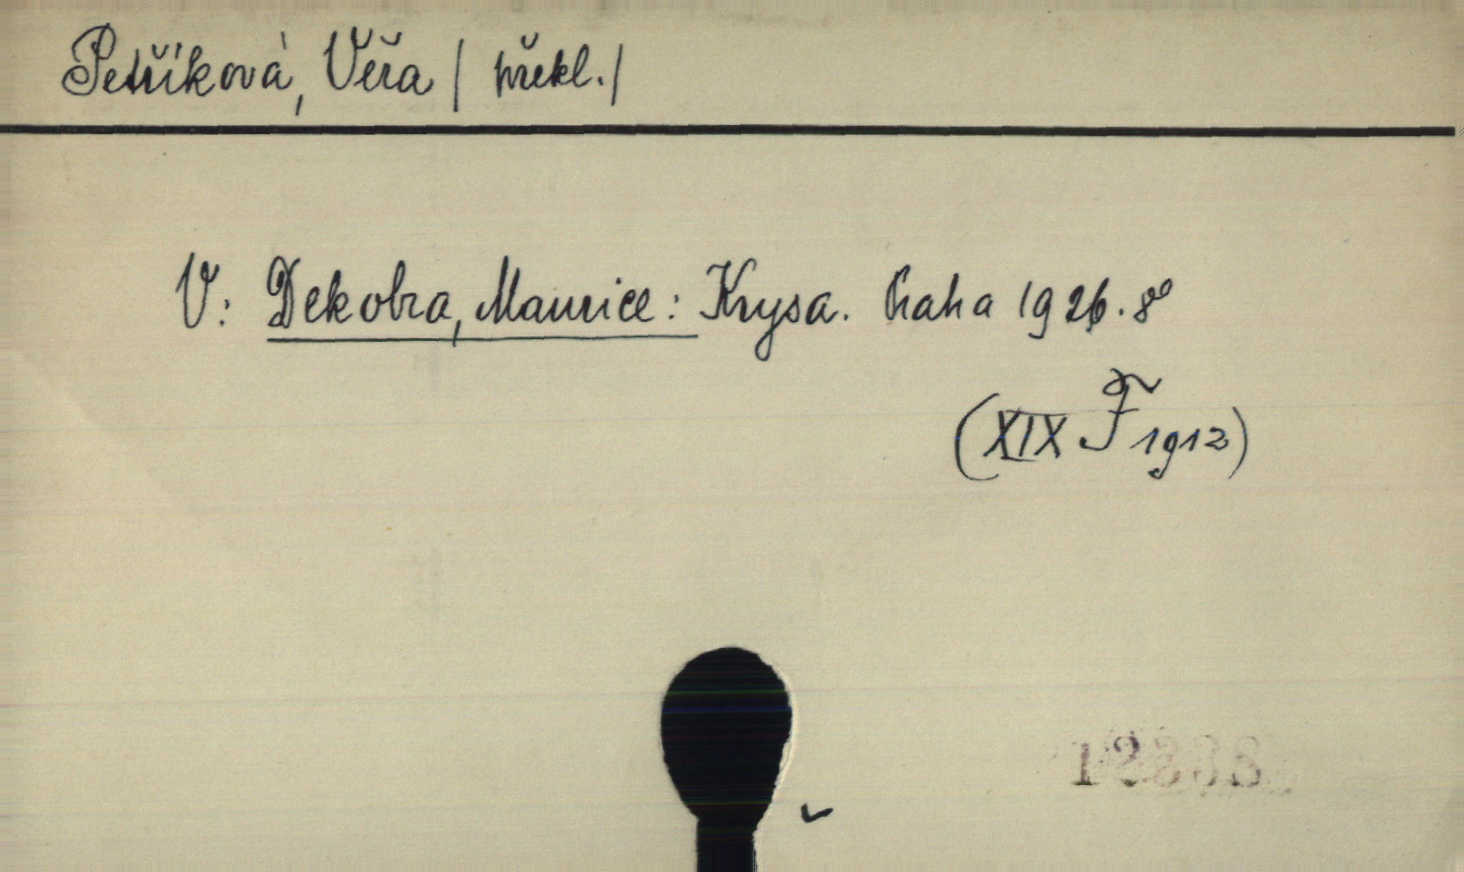 Petříková, Věra / překl./
V: Dekobra, Maurice: Krysa. Praha 1926. 8°
(XIX F 1912)